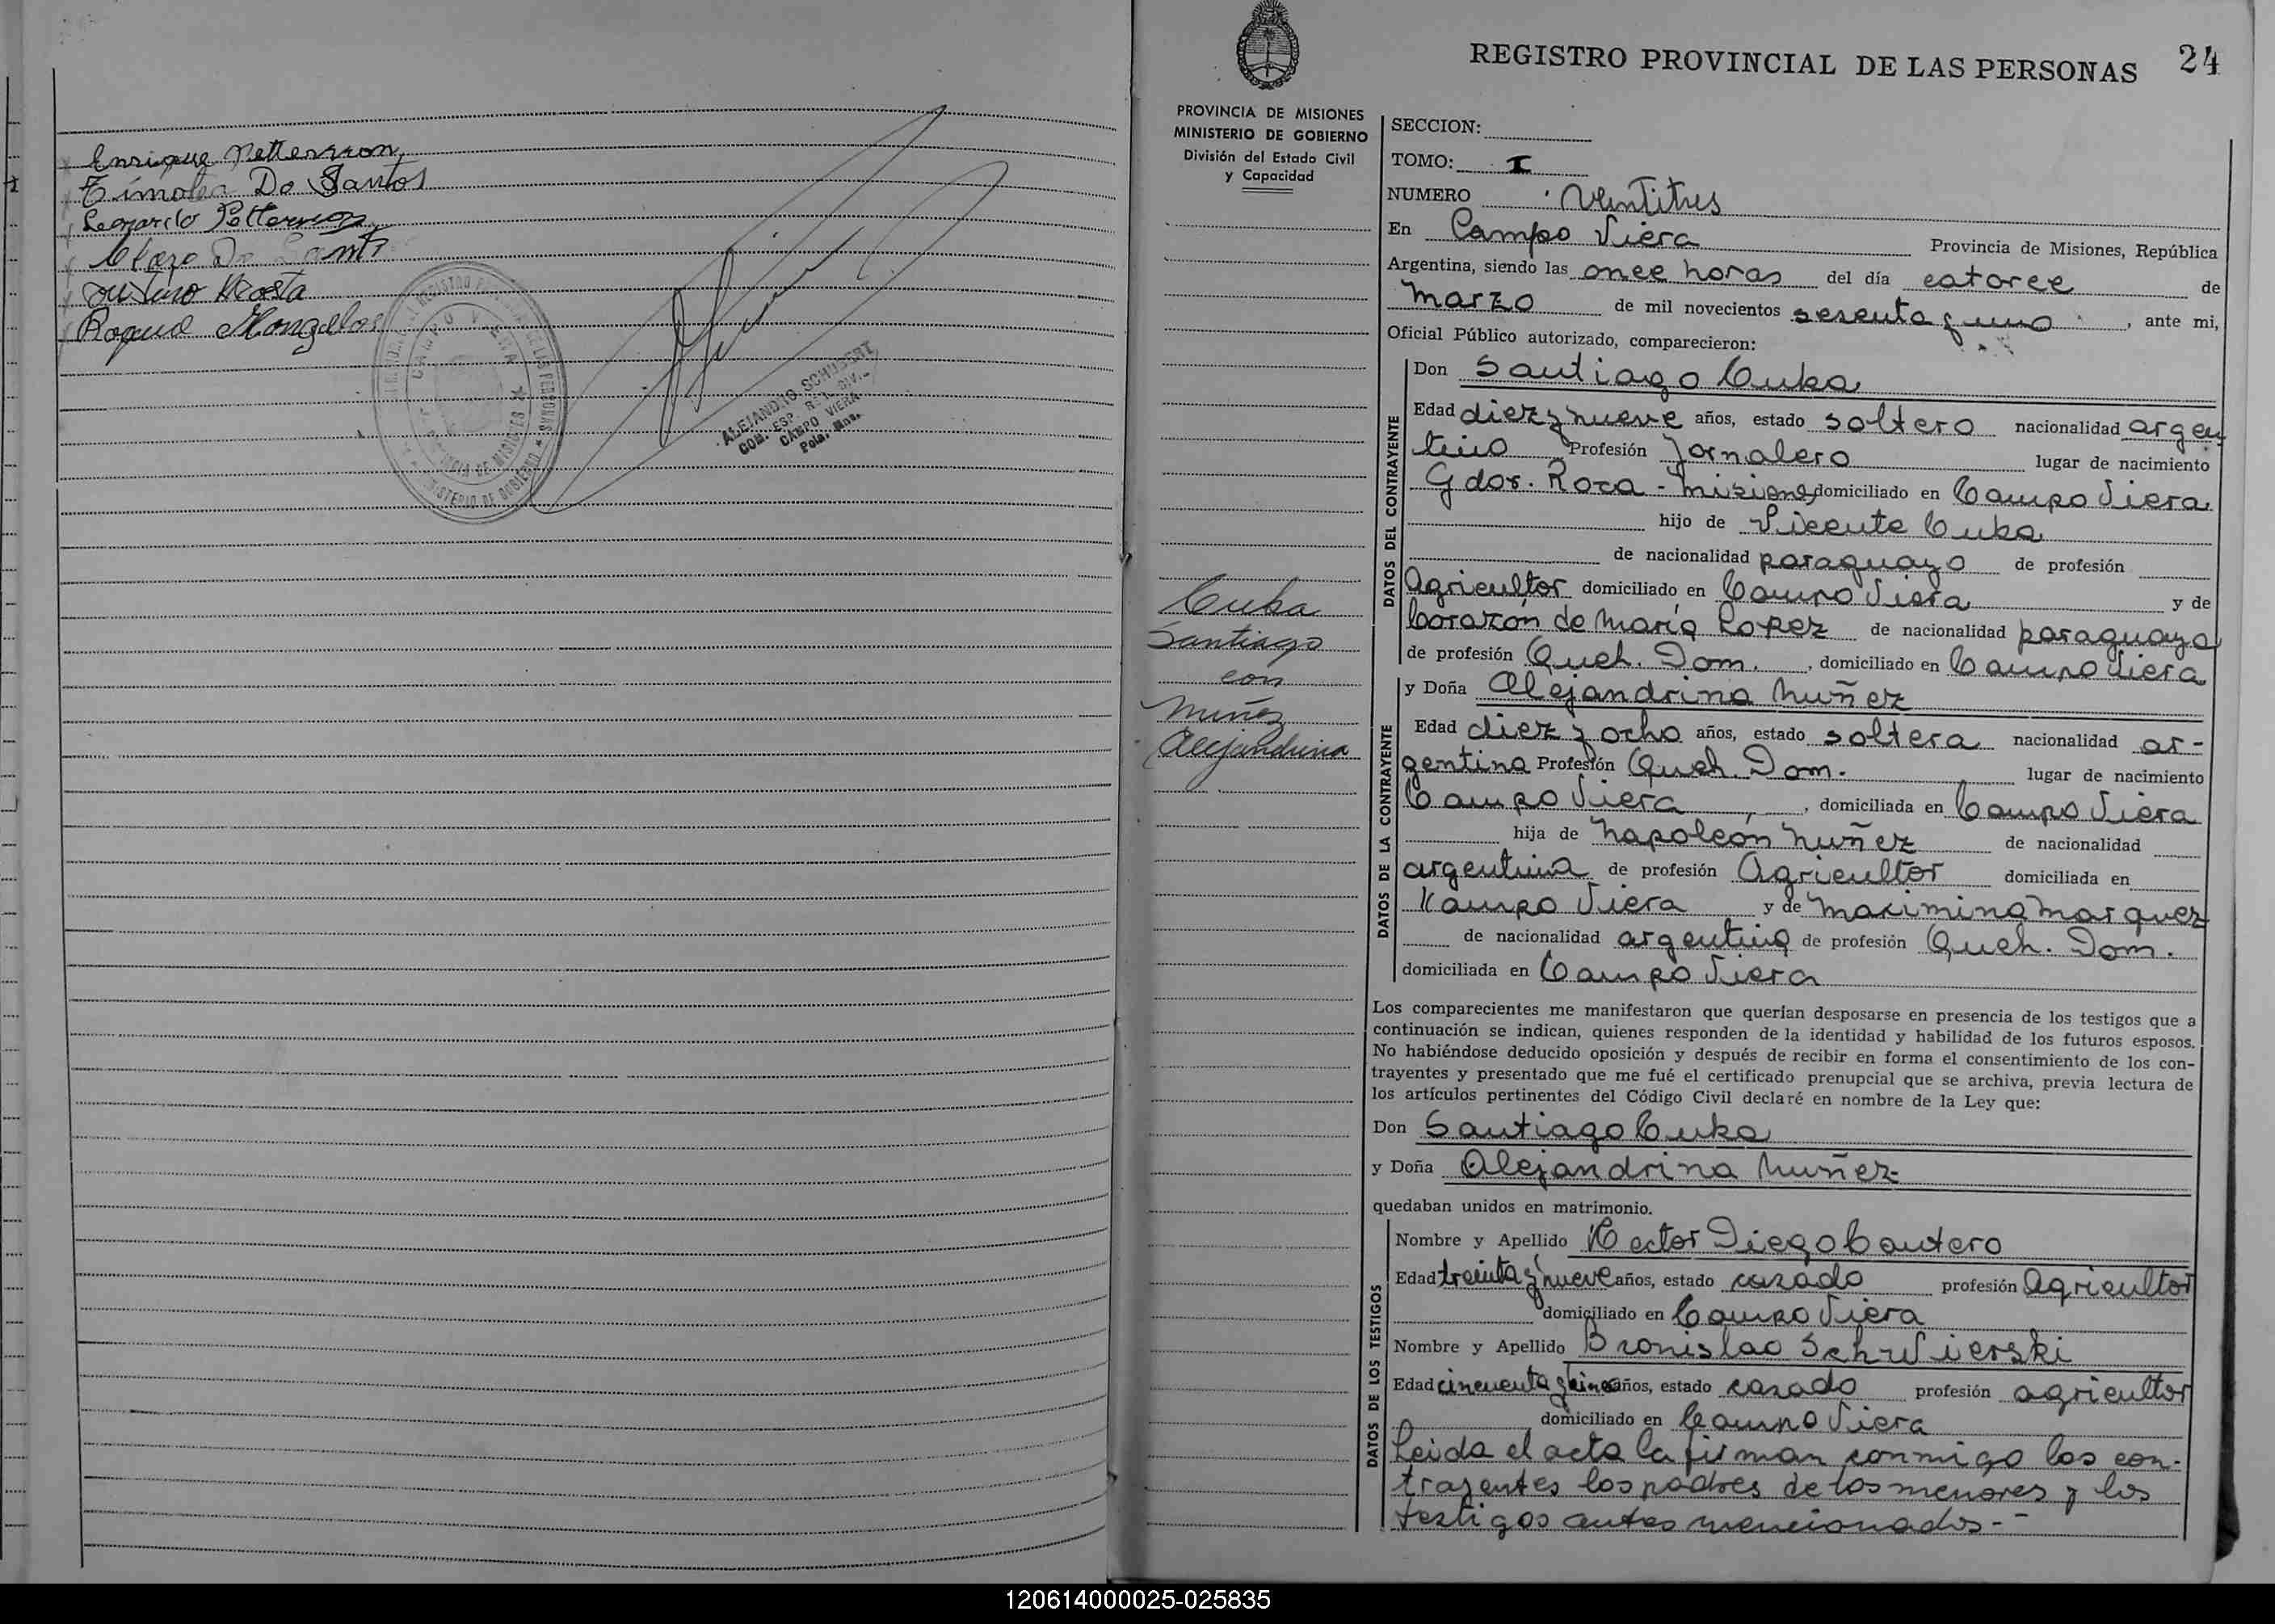 Enrique Petterson
Timotea Do Santos
Leonardo Petterson
Claro Do Santos
Justino Acosta
Roque Mongelos
CAMPO VIERA
MINISTERIO DE GOBIERNO
ALEJANDRO SCHUBERT
CAMPO VIERA
REGISTRO PROVINCIAL DE LAS PERSONAS 24
PROVINCIA DE MISIONES
MINISTERIO DE GOBIERNO
División del Estado Civil
y Capacidad
Cuba
Santiago
con
Nuñez
Alejandrina
SECCION:
TOMO: I
NUMERO Ventitres
En Campo Viera Provincia de Misiones, República
Argentina, siendo las once horas del día catorce de
Marzo de mil novecientos sesenta y uno, ante mi,
Oficial Público autorizado, comparecieron:
DATOS DEL CONTRAYENTE
Don Santiago Cuba
Edad diez y nueve años, estado soltero nacionalidad argen
tino Profesión Jornalero lugar de nacimiento
Gdor. Roca - Misiones domiciliado en Campo Viera
hijo de Vicente Cuba
de nacionalidad paraguayo de profesión
Agricultor domiciliado en Campo Viera y de
Corazón de María Lopez de nacionalidad paraguaya
de profesión Queh. Dom., domiciliado en Campo Viera
DATOS DE LA CONTRAYENTE
y Doña Alejandrina Nuñez
Edad diez y ocho años, estado soltera nacionalidad ar-
gentina Profesión Queh. Dom. lugar de nacimiento
Campo Viera, domiciliada en Campo Viera
hija de Napoleón Nuñez de nacionalidad
argentina de profesión Agricultor domiciliada en
Campo Viera y de Maximina Marquez
de nacionalidad argentina de profesión Queh. Dom.
domiciliada en Campo Viera
Los comparecientes me manifestaron que querían desposarse en presencia de los testigos que a
continuación se indican, quienes responden de la identidad y habilidad de los futuros esposos.
No habiéndose deducido oposición y después de recibir en forma el consentimiento de los con-
trayentes y presentado que me fué el certificado prenupcial que se archiva, previa lectura de
los artículos pertinentes del Código Civil declaré en nombre de la Ley que:
Don Santiago Cuba
y Doña Alejandrina Nuñez
quedaban unidos en matrimonio.
DATOS DE LOS TESTIGOS
Nombre y Apellido Hector Diego Cantero
Edad treinta y nueve años, estado casado profesión Agricultor
domiciliado en Campo Viera
Nombre y Apellido Bronislao Schwierski
Edad cincuenta y cinco años, estado casado profesión agricultor
domiciliado en Campo Viera
Leida el acta la firman conmigo los con-
trayentes los padres de los menores y los
testigos antes mencionados.-
120614000025-025835